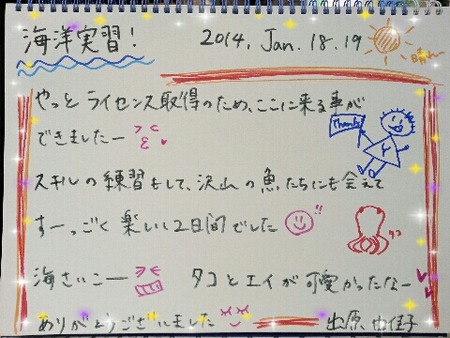 海洋実習! 2014. Jan. 18.19
晴れ
やっとライセンス取得のため、ここに来る事が
できましたー
Thanks
スキルの練習もして、沢山の魚たちにも会えて
すーっごく楽しい2日間でした
タコ
海さいこー タコとエイが可愛かったなー
ありがとうございました 出原 由佳子